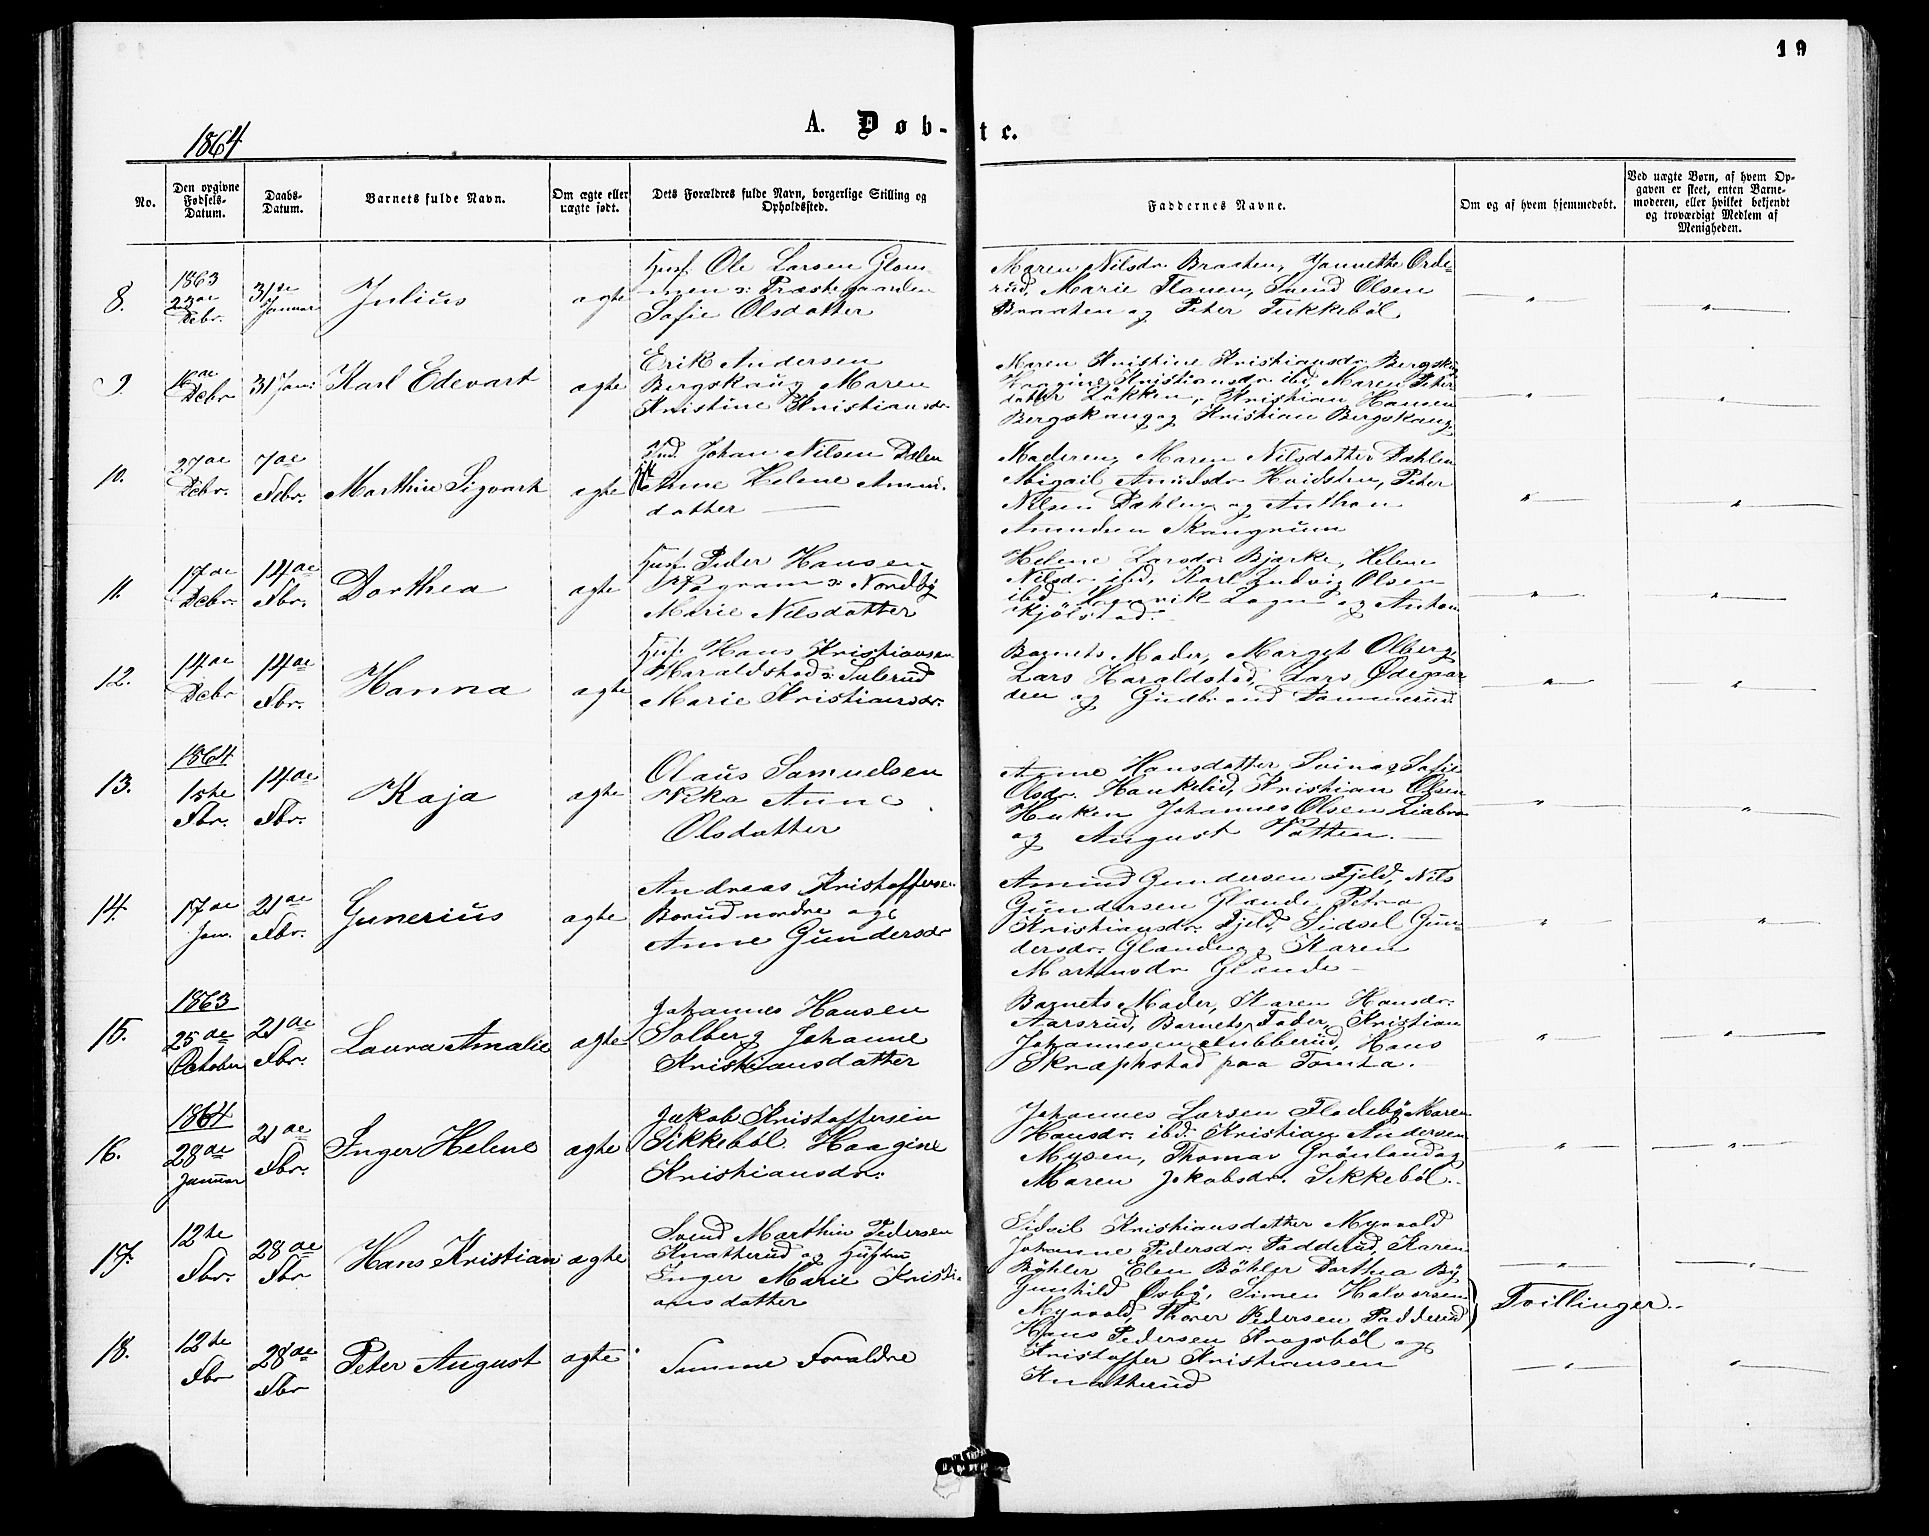 19
1864
A. Døb-te.
No.
Den opgivne Fødsels-Datum.
Daabs-Datum.
Barnets fulde Navn.
Om ægte eller uægte født.
Dets Forældres fulde Navn, borgerlige Stilling og Opholdssted.
Faddernes Navne.
Om og af hvem hjemmedøbt.
Ved uægte Børn, af hvem Opgaven er skeet, enten Barnemoderen, eller hvilket bekjendt og troværdigt Medlem af Menigheden.
8.
1863
23de
Decbr.
31te
Januar
Julius
ægte
Husf. Ole Larsen Glom-
Præstegaarden
Sofie Olsdatter
Maren Nilsdr. Braaten, Jannette Orde-
rud, Marie Tlauen, Svend Olsen
Braaten og Peter Tukkebøl
9.
16de
Decbr
31 Jan:
Karl Edevart
ægte
Erik Andersen
Bergskaug Maren
Kristine Kristiansdr.
Maren Kristine Kristiansdr. Bergskaug
Kristiansdr. ibd, Maren Peter
datter Løkken, Kristian Hansen
Bergskaug og Kristian Bergskaug
10.
27de
Decbr.
7de
Febr.
Marthin Sigvart
ægte
Ind. Johan Nilsen Dælen
Anne Helene Amun-
datter
Maren Nilsdatter Dæhlen
Abigail Amundsdr. Hvidsten, Peter
Nilsen Dæhlen og Anthon
Amundsen Skaugrum
11.
17de
Decbr.
14de
Fbr.
Dorthea
ægte
Husf. Peder Hansen
Nordby
Marie Nilsdatter
Helene Larsdr. Bjerke, Helene
Nilsdr. ibd, Karl Ludvig Olsen
ibd Henrik Lagn og Anton
Kjølstad.
12.
14de
Decbr
14de
Fbr.
Hanna
ægte
Husf. Hans Kristiansen
Haraldstad Sulerud
Marie Kristiansdr.
Barnets Moder, Marget Olberg
Lars Haraldstad, Lars Ødegaar
den og Gudbrand Dammerud
13.
1864
1ste
Fbr.
14de
Fbr.
Kaja
ægte
Olaus Samuelsen
Anne
Olsdatter
Anne Hansdatter, Sofie
Olsdr. Haukelid, Kristian Olsen
Huken Johannes Olsen Liabro
og August Patten.
14.
17de
Jan.
21de
Fbr.
Gunerius
ægte
Andreas Kristoffersen
Borud nordre og
Anne Gundersdr
Amund Gundersen Fjeld, Nils
Gundersen Glande, Petra
Kristiansdr. Fjeld, Sidsel Gun-
dersdr. Glande og Karen
Martinsdr. Glande
15.
1863
25de
October
21de
Fbr.
Laura Amalie
ægte
Johannes Hansen
Solberg Johanne
Kristiansdatter
Barnets Moder, Karen Hansdr.
Aarsrud, Barnets Fader, Kristian
Johannesen Hubberud, Hans
Skræphstad paa Tomta.
16.
1864
28de
Januar
21de
Fbr.
Inger Helene
ægte
Jakob Kristoffersen
Sikkebøl Haagine
Kristiansdr.
Johannes Larsen Fladeby Maren
Hansdr. ibd. Kristian Andersen
Mysen, Thomas Grønland og
Maren Jakobsdr. Sikkebøl.
17.
12te
Fbr.
28de
Fbr
Hans Kristian
ægte
Svend Marthin Pedersen
Knatterud og Hustru
Inger Marie Kristi-
ansdatter
Sidsil Kristiansdatter Myrvold
Johanne Pedersdr. Padderud, Karen
Bøhler Elen Bøhler Dorthea By
Gunhild Østby, Simen Halvorsen
Myrvold, Thorer Pedersen Padderud
Tvillinger.
18.
12te
Fbr
28de
Fbr
Peter August
ægte
Samme Forældre
Hans Pedersen Kragsbøl og
Kristoffer Kristiansen
Knatterud